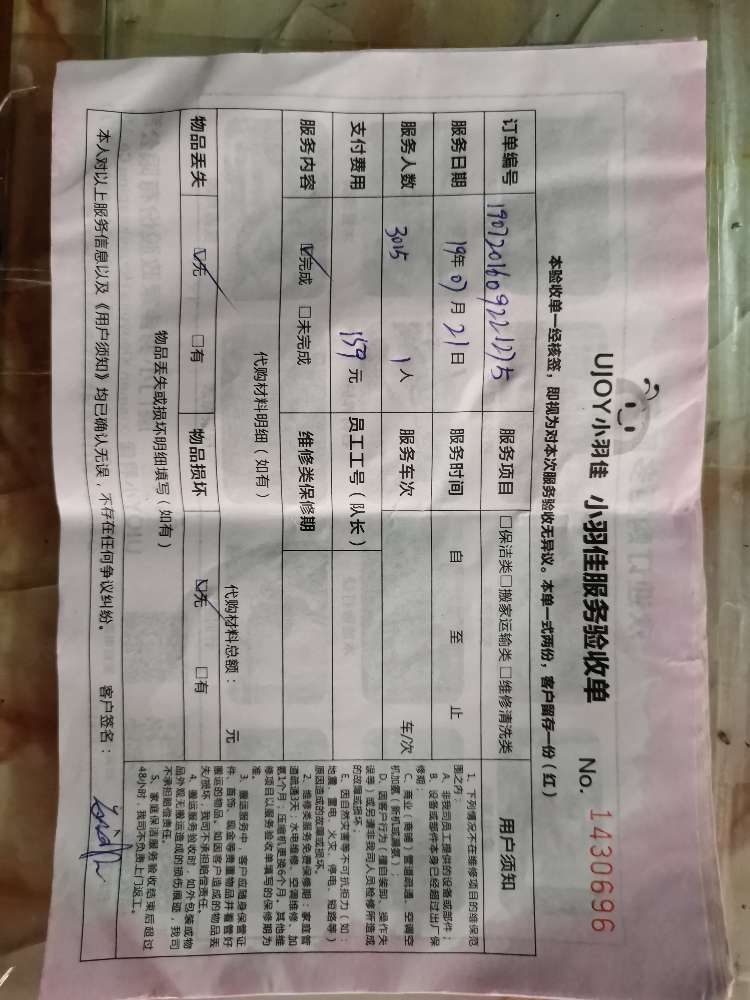 UJOY小羽佳 小羽佳服务验收单 No. 1430696
本验收单一经核签，即视为对本次服务验收无异议。本单一式两份，客户留存一份（红）
订单编号 服务项目 □保洁类□搬家运输类□维修清洗类
服务日期 19年07月21日 服务时间 自 至 止
服务人数 3015 1人 服务车次 车/次
支付费用 159元 员工工号（队长）
服务内容 ☑完成 □未完成 维修类保修期
代购材料明细（如有）
代购材料总额： 元
物品丢失 ☑无 □有 物品损坏 ☑无 □有
物品丢失或损坏明细填写（如有）
用户须知
1、下列情况不在维修项目的维保范
围之内：
A、非我司员工提供的设备或部件；
B、设备或部件本身已经超过出厂保
修期；
C、商业（商铺）管道疏通、空调空
机加氨（新机或漏氨）；
D、因客户行为（擅自装卸、操作失
误等）或另请非我司人员检修所造成
的故障或损坏；
E、因自然灾害等不可抗拒力（如：
地震、雷电、火灾、停电、短路等）
原因造成的故障或损坏。
2、维修类服务免费保修期：家庭管
道疏通3天，水电维修、空调维修、加
氨1个月；压缩机更换6个月。其他维
修项目以服务验收单填写的保修期为
准。
3、搬运服务中，客户应随身保管证
件、首饰、现金等贵重物品并看管好
搬运的物品。如因客户造成的物品丢
失/损坏，我司不承担赔偿责任。
4、搬运服务验收时，如外包装或物
品外观无搬运造成的损伤痕迹，我司
不承担赔偿责任。
5、家庭保洁服务验收结束后超过
48小时，我司不负责上门返工。
本人对以上服务信息以及《用户须知》均已确认无误，不存在任何争议纠纷。 客户签名：